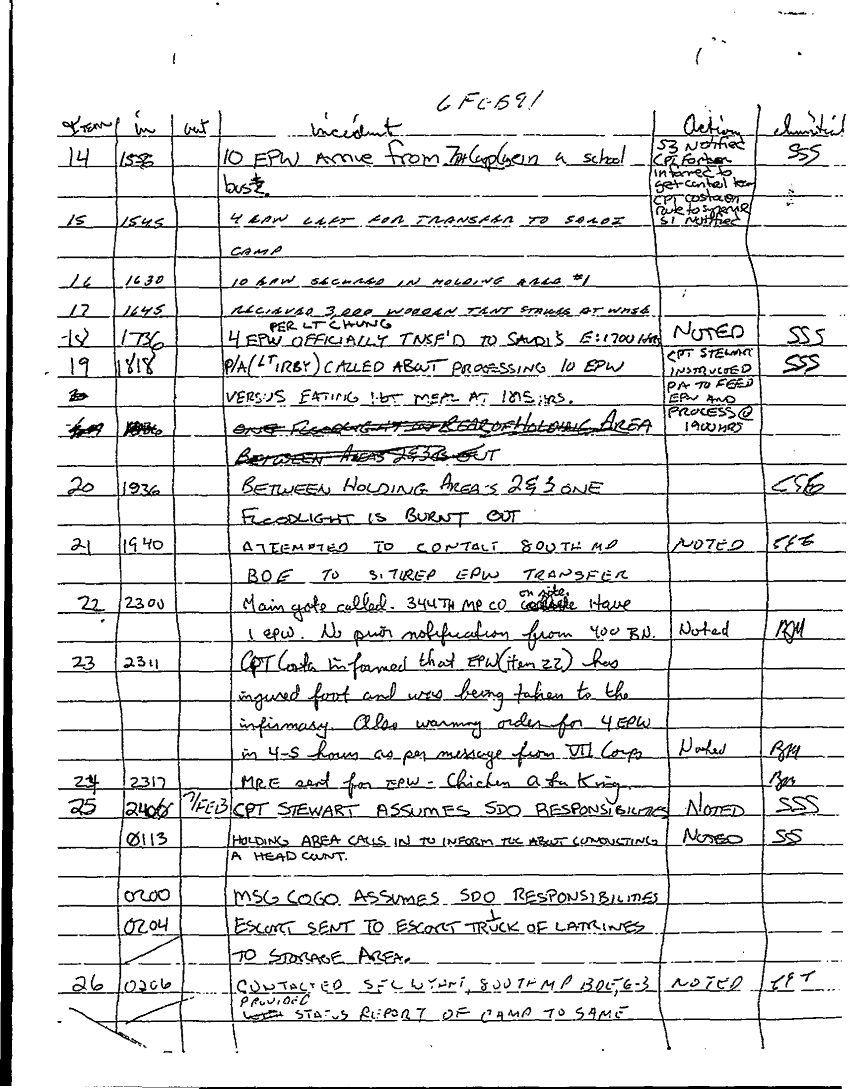 6 FEB 91
Item in out incident Action Initial
14 1556 10 EPW Arrive from 7th Corp in a school S3 Notified SSS
bus. informed to
get control
CPT Costa en
route to
S1 Notified
15 1545 4 EPW LEFT FOR TRANSFER TO SAUDI
CAMP
16 1630 10 EPW SECURED IN HOLDING AREA #1
17 1645 RECIEVED 3,000 WOODEN TENT STAKES AT WHSE
PER LT CHUNG
18 1736 4 EPW OFFICIALLY TNSF'D TO SAUDI'S E: 1700 HRS NOTED SSS
19 1818 P/A (LT IRBY) CALLED ABOUT PROCESSING 10 EPW CPT STEWART SSS
INSTRUCTED
VERSUS EATING HOT MEAL AT 1815 HRS. PA TO FEED
EPW AND
PROCESS @
1900 HRS
ONE FLOODLIGHT AT REAR OF HOLDING AREA
BETWEEN AREAS 2 & 3 IS OUT
20 1936 BETWEEN HOLDING AREA'S 2 & 3 ONE
FLOODLIGHT IS BURNT OUT
21 1940 ATTEMPTED TO CONTACT 800TH MP NOTED
BDE TO SITIREP EPW TRANSFER
on site.
22 2300 Main gate called. 344TH MP CO Have
1 EPW. No prior notification from 400 BN. Noted BM
23 2311 CPT Costa informed that EPW (item 22) has
ingured foot and was being taken to the
infirmary. Also warning order for 4 EPW
in 4-5 hours as per message from VII Corps Noted BM
24 2317 MRE sent for EPW - Chicken A La King. BM
25 2400 7/FEB CPT STEWART ASSUMES SDO RESPONSIBILITIES NOTED SSS
0113 HOLDING AREA CALLS IN TO INFORM TOC ABOUT CONDUCTING NOTED SS
A HEAD COUNT.
0200 MSG COGO ASSUMES SDO RESPONSIBILITIES
0204 ESCORT SENT TO ESCORT TRUCK OF LATRINES
TO STORAGE AREA.
26 0206 CONTACTED SFC 800TH MP BDE, G-3 NOTED
PROVIDED
STATUS REPORT OF CAMP TO SAME